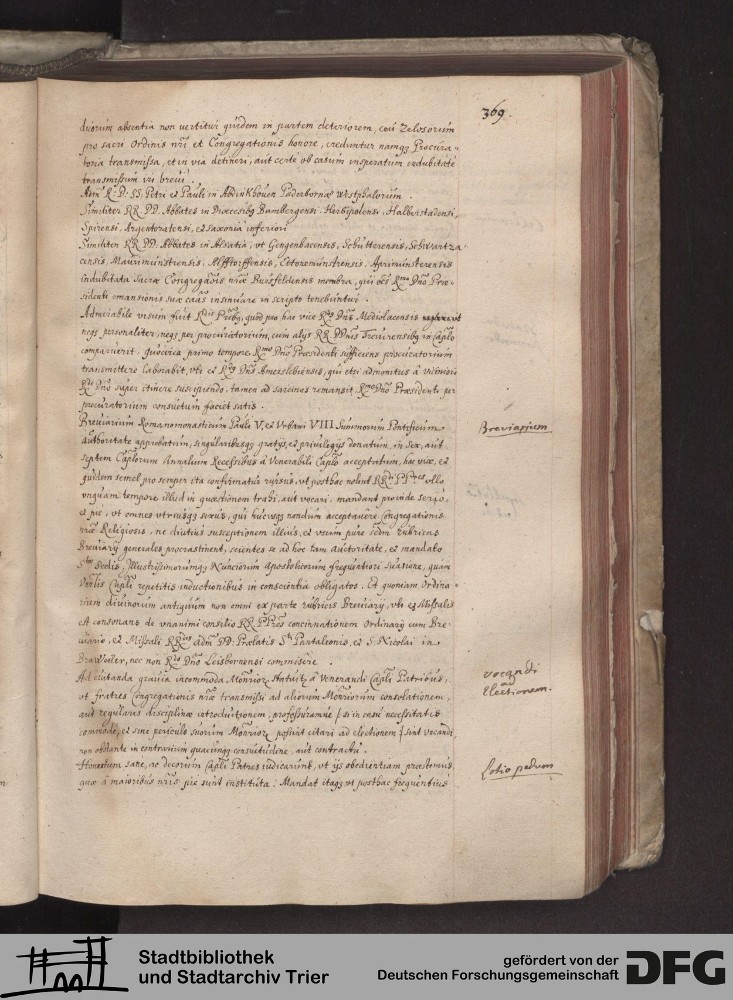 369.
duorum absentia non vertitur quidem in partem deteriorem, ceu Zelosorum
pro sacri Ordinis nri et Congregationis honore, creduntur namqꝫ Procura-
toria transmissa, et in via detineri, aut certè ob casum insperatum indubitatè
transmissum iri brevi.
Adm̃ R. D. SS. Petri et Pauli in Abdinkhouen Paderbornæ Westphalorum.
Similiter RR. DD. Abbates in Diœcesibꝫ Bambergensi, Herbipolensi, Halberstadensi,
Spirensi, Argentoratensi, et Saxonia inferiori
Similiter RR DD. Abbates in Alsatia, vt Gengenbacensis, Schutterensis, Schwartza-
censis, Maurimünstrensis, Alffttorffensis, Ettoremünstrensis, Aprimünsterensis
indubitata Sacræ Congregaõis nræ Bursfeldensis membra, qui oẽs Rmo Dno Præ-
sidenti emansionis suæ caãs insinuare in scripto tenebuntur.
Admirabile visum fuit Rdis Pribꝫ, quod pro hac vice Rdꝫ Dnꝫ Mediolacensis
neqꝫ personaliter, neqꝫ per procuratorium, cum alijs RR. DDnis Trevirensibꝫ in Caplo
comparuerit, quocirca primo tempore Rmo Dno Præsidenti sufficiens procuratorium
transmittere laborabit, vti et Rdꝫ Dnꝫ Amerslebiensis, qui etsi admonitus à vicinioris
Rdo Dno super itinere suscipiendo, tamen ad sarcinas remansit, Rmo Dno Præsidenti per
procuratorium consuetum faciet satis.
Breviarium Romanomonasticum Pauli V. et Vrbani VIII. Summorum Pontificum
Breviarium
Authoritate approbatum, singularibusqꝫ gratijs, et privilegijs donatum, in Sex, aut
septem Caplorum Annalium Recessibus à Venerabili Caplo acceptatum, hac vice, et
quidem semel pro semper ita confirmatur rursus, vt posthac nolint RRdi PPres vllo
vnquam tempore illud in quæstionem trahi, aut vocari. mandant proinde seriò,
et piè, vt omnes vtriusqꝫ sexus, qui hucusqꝫ nondum acceptauere Congregationis
nræ Religiosis, ne diutius susceptionem illius, et vsum purè scdm rubricas
Breviarij generales procrastinent, scientes se ad hoc tam Auctoritate, et mandato
Stæ Sedis, Illustrissimorumqꝫ Nunciorum Apostolicorum frequentiori suasione, quam
Vnrlis Capli repetitis inductionibus in conscientia obligatos. Et quoniam Ordina-
rium divinorum antiquum non omni ex parte rubricis Breviarij, vti et Missalis
est consonans de vnanimi consilio RR. PPres concinnationem Ordinarij cum Bre-
viario, et Missali RRdis adm̃ DD: Prælatis Sti Pantaleonis, et S. Nicolai in
BraWeiler, nec non Rdo Dno Leisbornensi commisere.
Ad euitanda gravia incommoda Monriorꝫ Antuitꝫ à Venerandi Capli Patribus,
vocandi
vt fratres Congregationis nræ transmissi ad aliorum Monriorum consolationem,
ad
aut regularis disciplinæ introductionem, professuramue / si in casu necessitatis
Electionem.
commodè, et sine periculo suorum Monriorꝫ possint citari ad electionem / sint vocandi,
non obstante in contrarium quacunqꝫ consuetudine, aut contractu.
Honestum sane, ac decorum Capli Patres iudicarunt, vt ijs obedientiam præstemus,
Lotio pedum
quæ à maioribus nris piè sunt instituta. Mandat itaqꝫ vt posthac frequentius
Stadtbibliothek
und Stadtarchiv Trier
gefördert von der
Deutschen Forschungsgemeinschaft
DFG